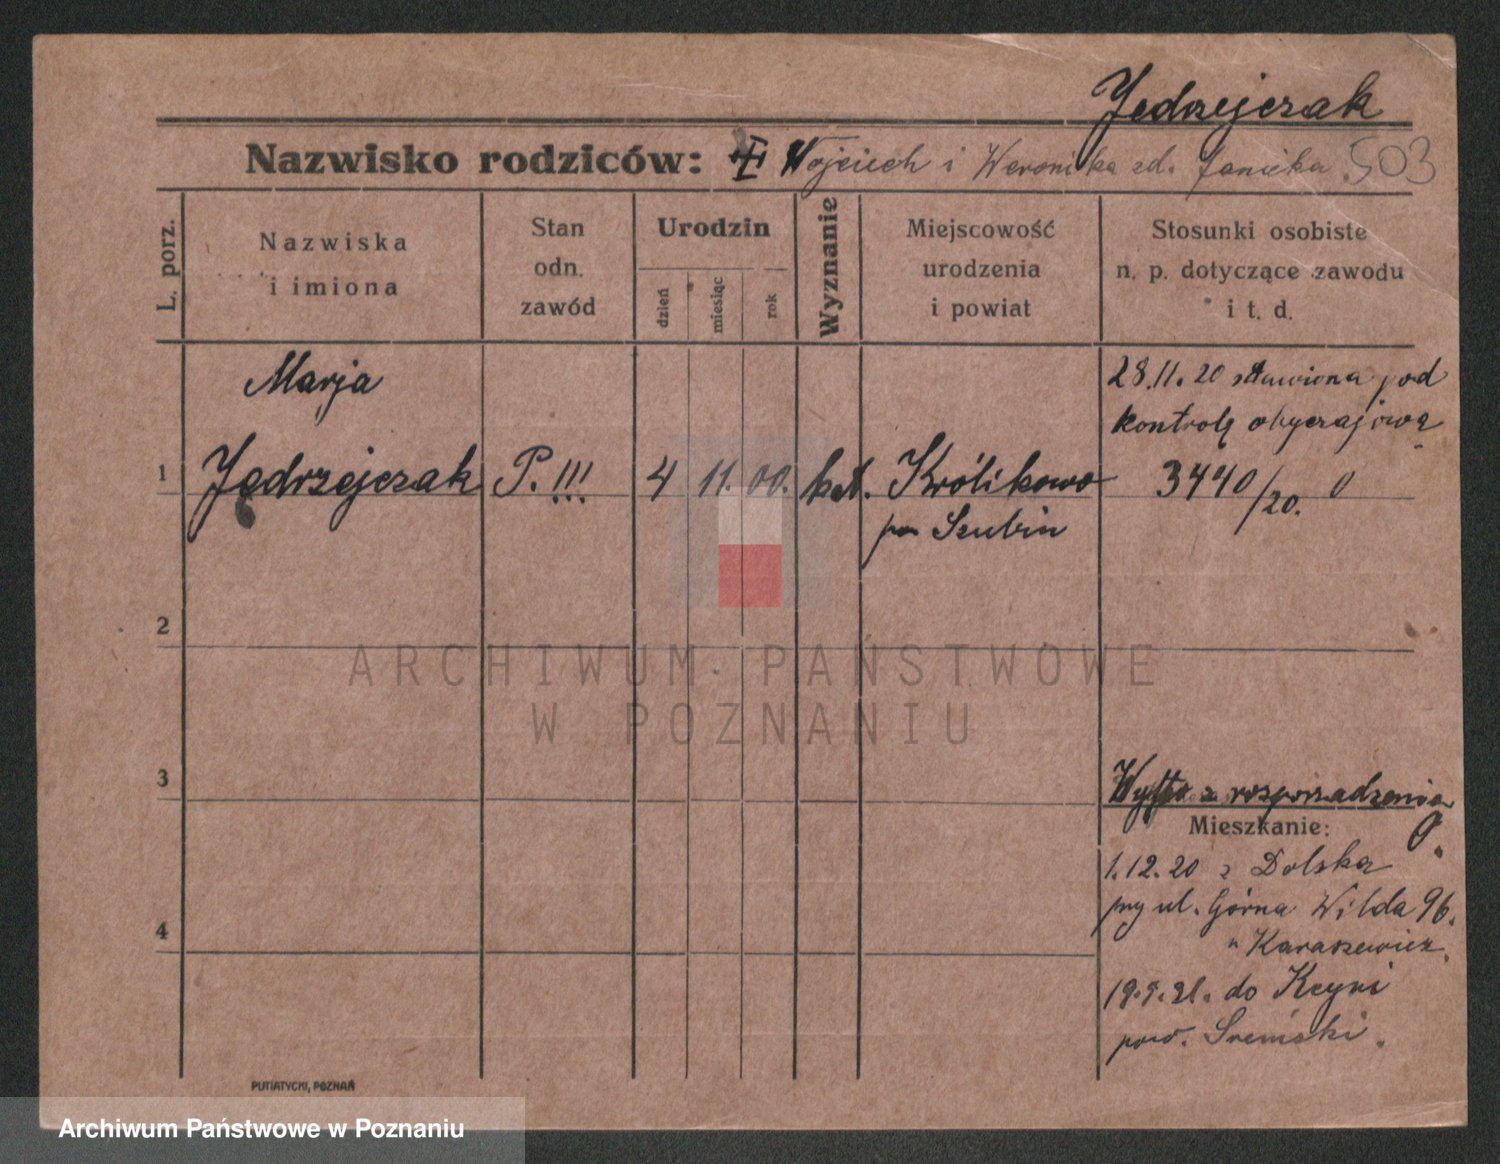 Jędrzejczak
Nazwisko rodziców: Wojciech i Weronika zd. Janicka. 503
L. porz.
Nazwiska
i imiona
Stan
odn.
zawód
Urodzin
dzień
miesiąc
rok
Wyznanie
Miejscowość
urodzenia
i powiat
Stosunki osobiste
n. p. dotyczące zawodu
i t. d.
Marja
1 Jędrzejczak P. !!! 4 11. 00. kat. Królikowo
po Szubin
28.11.20 stawiona pod
kontrolę obyczajową
3440/20.
2
ARCHIWUM PAŃSTWOWE
W POZNANIU
3
z rozporządzenia
Mieszkanie:
1.12.20 z Dolska
przy ul. Górna Wilda 96.
" Karaszewicz.
4
do Kcyni
pow. Sremski.
PUTIATYCKI, POZNAŃ
Archiwum Państwowe w Poznaniu